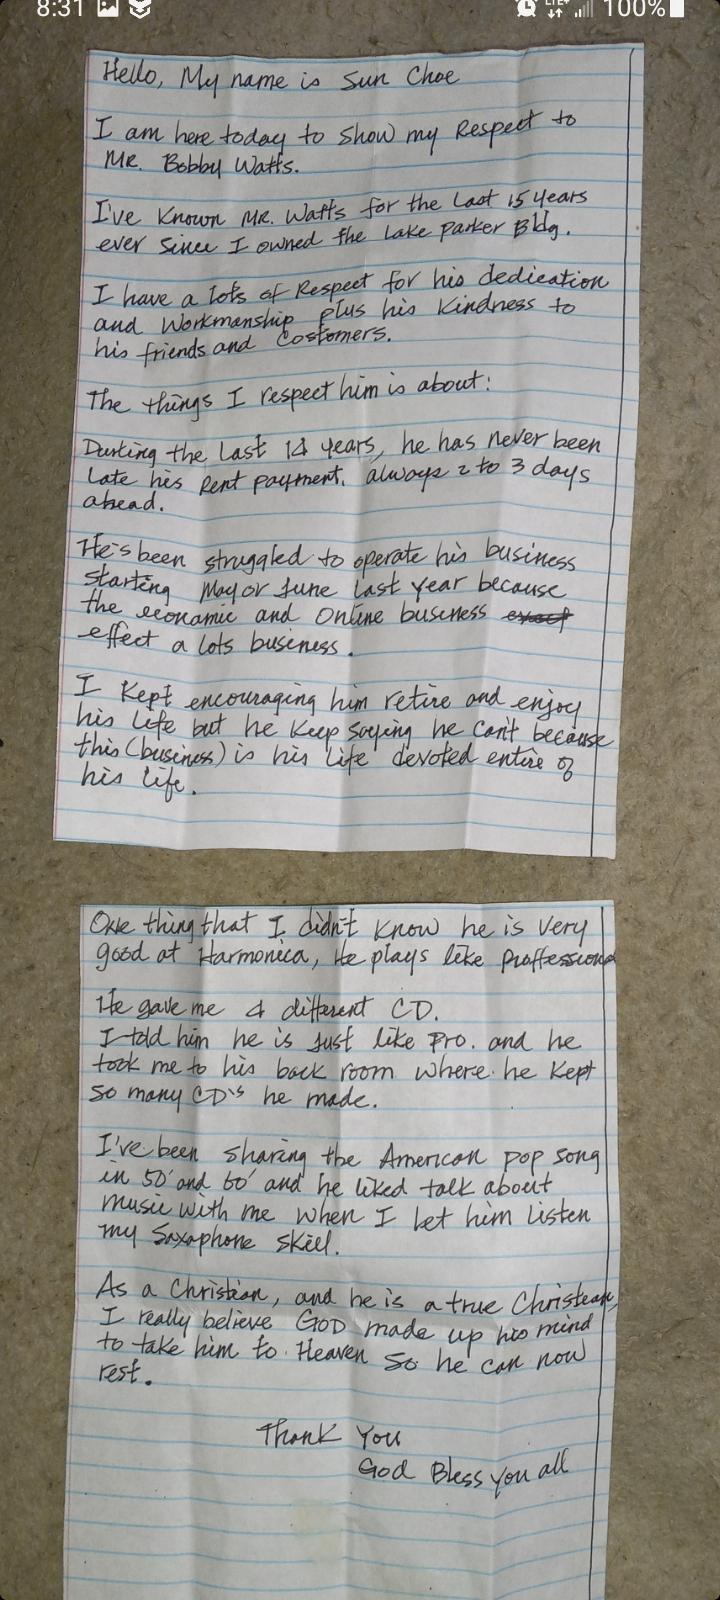 8:31
LTE+
100%
Hello, My name is Sun Choe
I am here today to show my Respect to
MR. Bobby Watts.
I've Known MR. Watts for the Last 15 years
ever since I owned the Lake Parker Bldg.
I have a lots of Respect for his dedication
and Workmanship plus his Kindness to
his friends and Costomers.
The things I respect him is about:
Durting the Last 14 years, he has never been
Late his Rent payment. always 2 to 3 days
ahead.
He's been struggled to operate his business
starting May or June Last year because
the economic and Online business
effect a lots business.
I Kept encouraging him retire and enjoy
his life but he Keep saying he can't because
this (business) is his life devoted entire of
his life.
One thing that I didn't Know he is very
good at Harmonica, He plays like proffessional
He gave me 4 different CD.
I told him he is Just like Pro. and he
took me to his back room where he Kept
so many CD's he made.
I've been sharing the American pop song
in 50' and 60' and he liked talk about
music with me when I let him listen
my Saxophone skill.
As a Christian, and he is a true Christean,
I really believe GOD made up his mind
to take him to Heaven so he can now
rest.
Thank You
God Bless you all